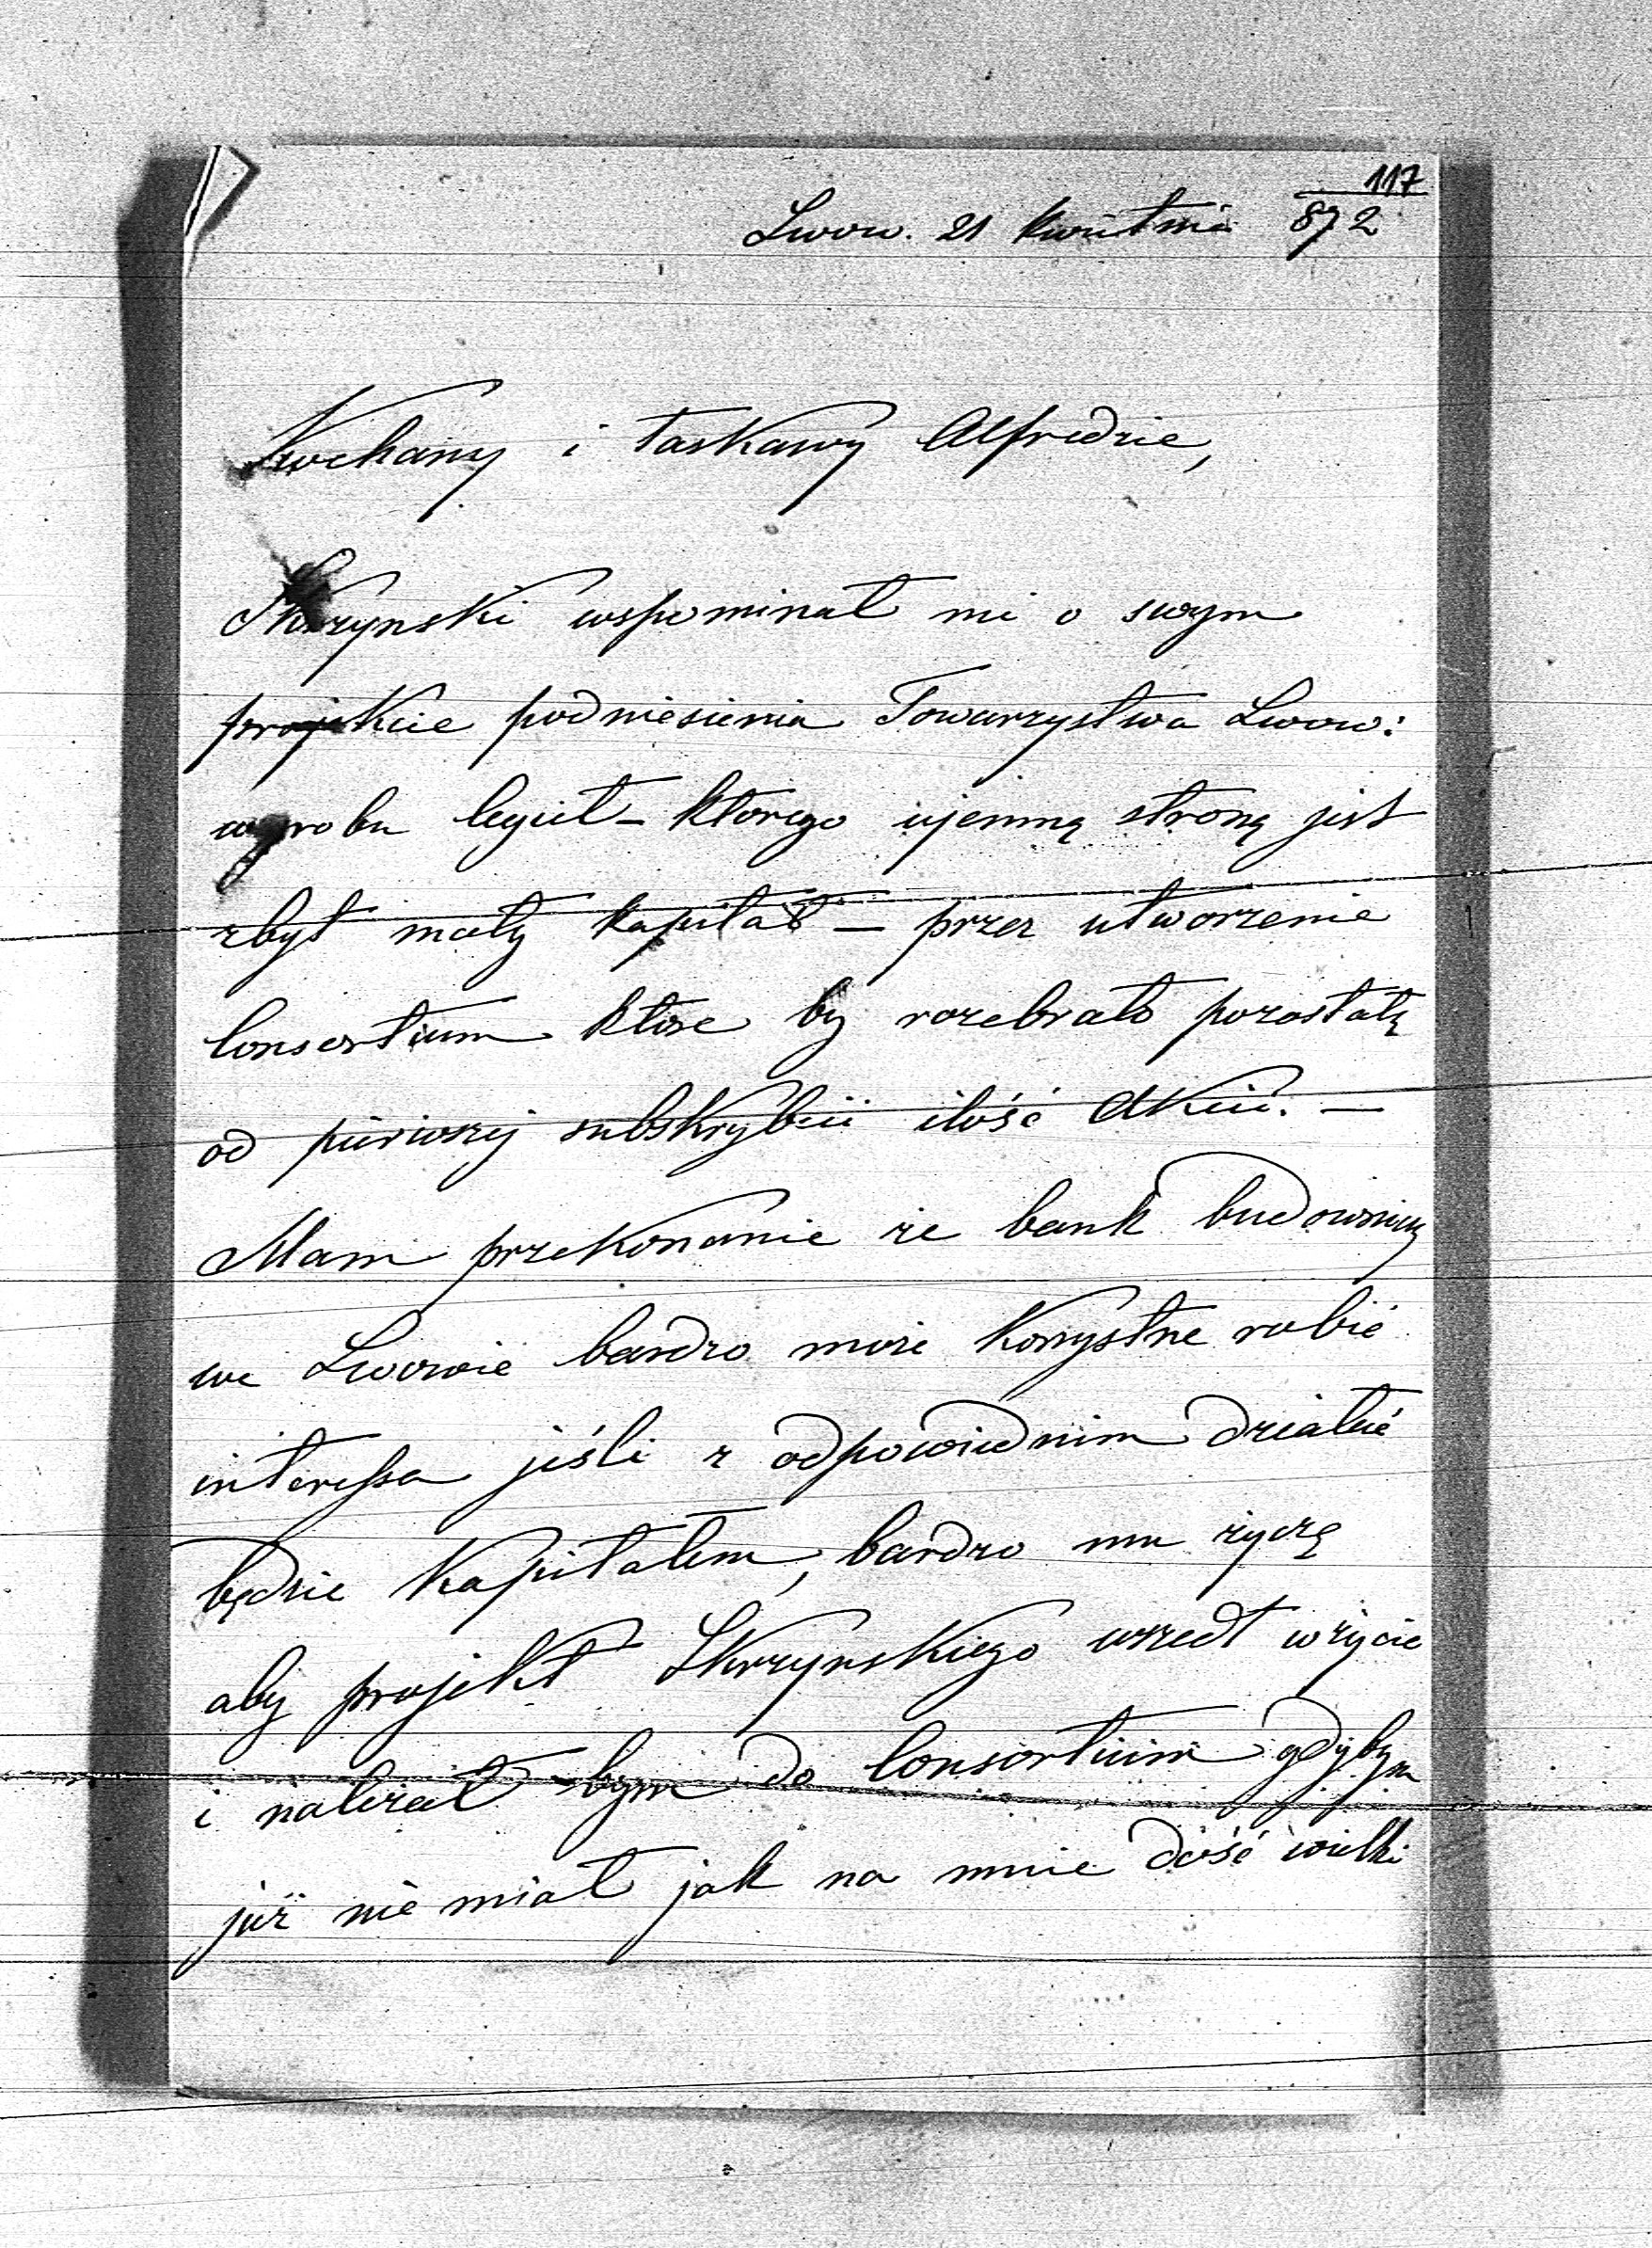 117
Lwow. 21 kwietnia 872
Kochany i łaskawy Alfredzie,
Skrzynski wspominał mi o swym
projekcie podniesienia Towarzystwa Lwow:
wyrobu cegieł – ktorego ujemną stroną jest
zbyt mały kapitał – przez utworzenie
Consortium ktore by rozebrało pozostałą
od pierwszej subskrybcii ilość Akcii. –
Mam przekonanie że bank budowniczy
we Lwowie bardzo może korzystne robić
interessa jeśli z odpowiednim działać
będzie kapitałem, bardzo mu życzę
aby projekt Skrzynskiego wszedł w życie
i należał bym do Consortium gdybym
już nie miał jak na mnie dość wielki